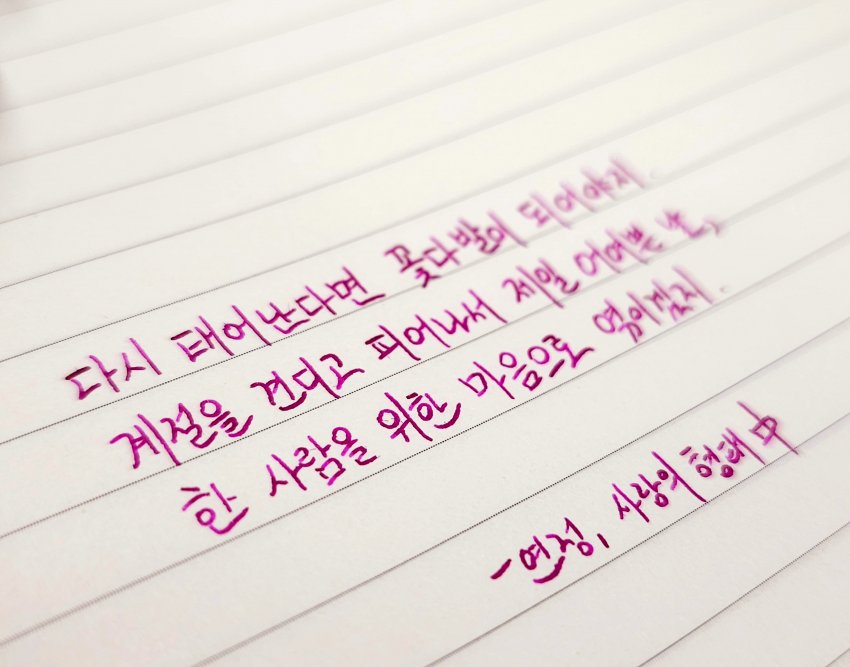 다시 태어난다면 꽃다발이 되어야지
계절을 견디고 피어나서 제일 어여쁜 날,
한 사람을 위한 마음으로 엮이겠지.
- 연정, 사랑의 형태 中